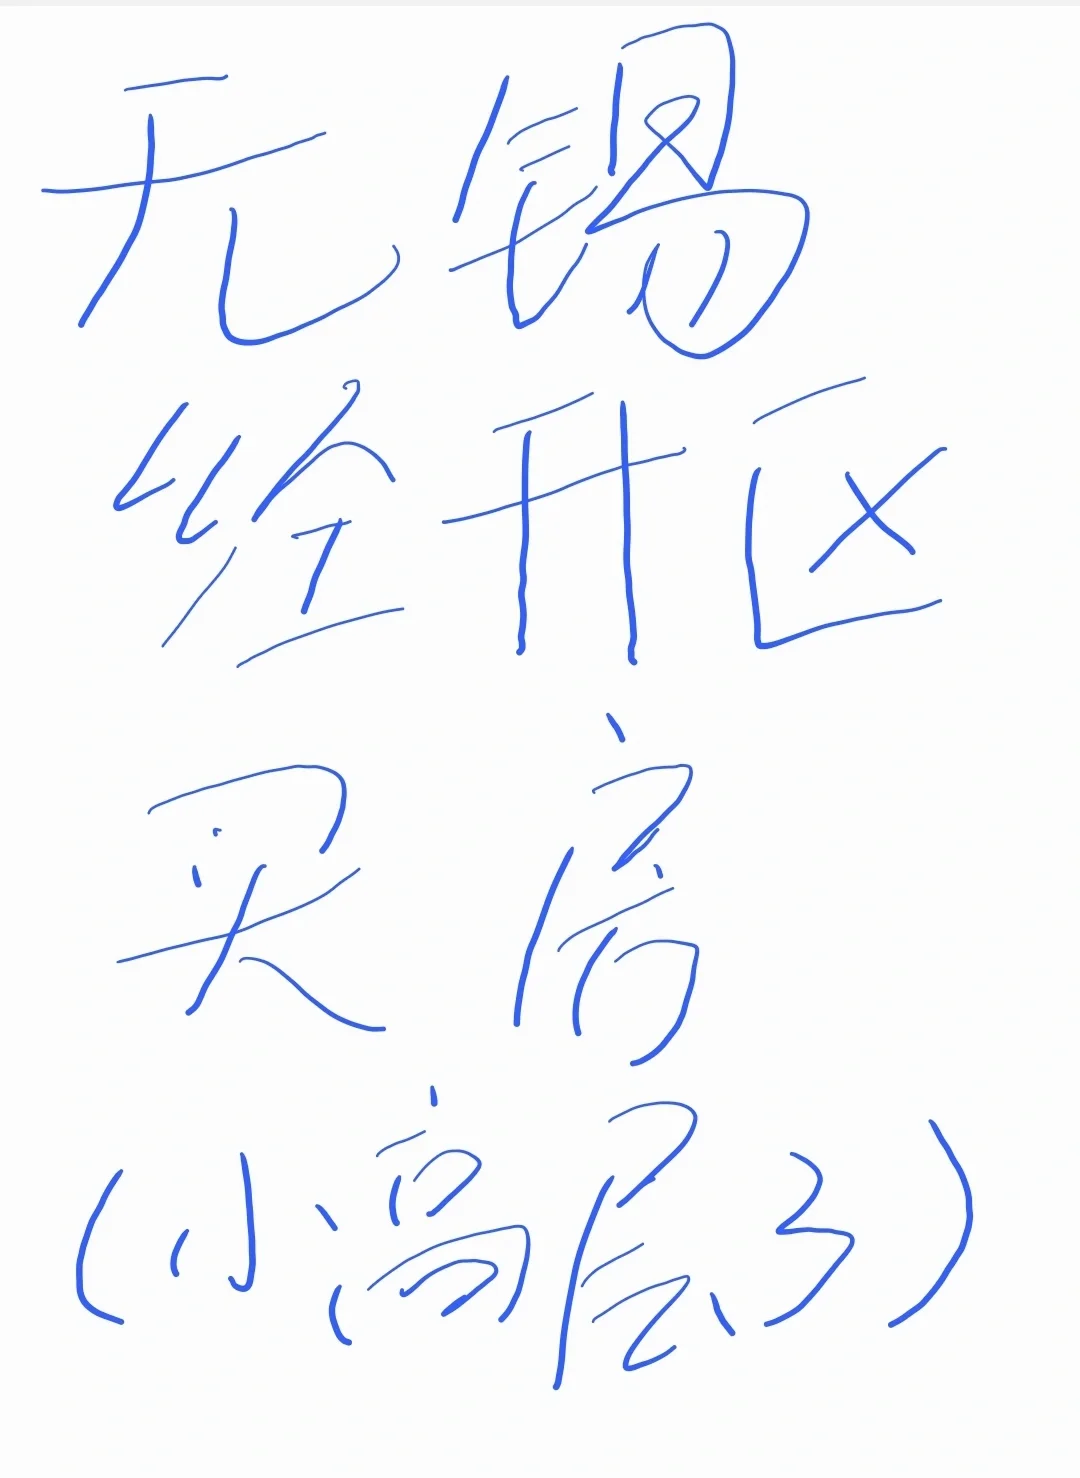 无锡
经开区
买房
(小高层3)